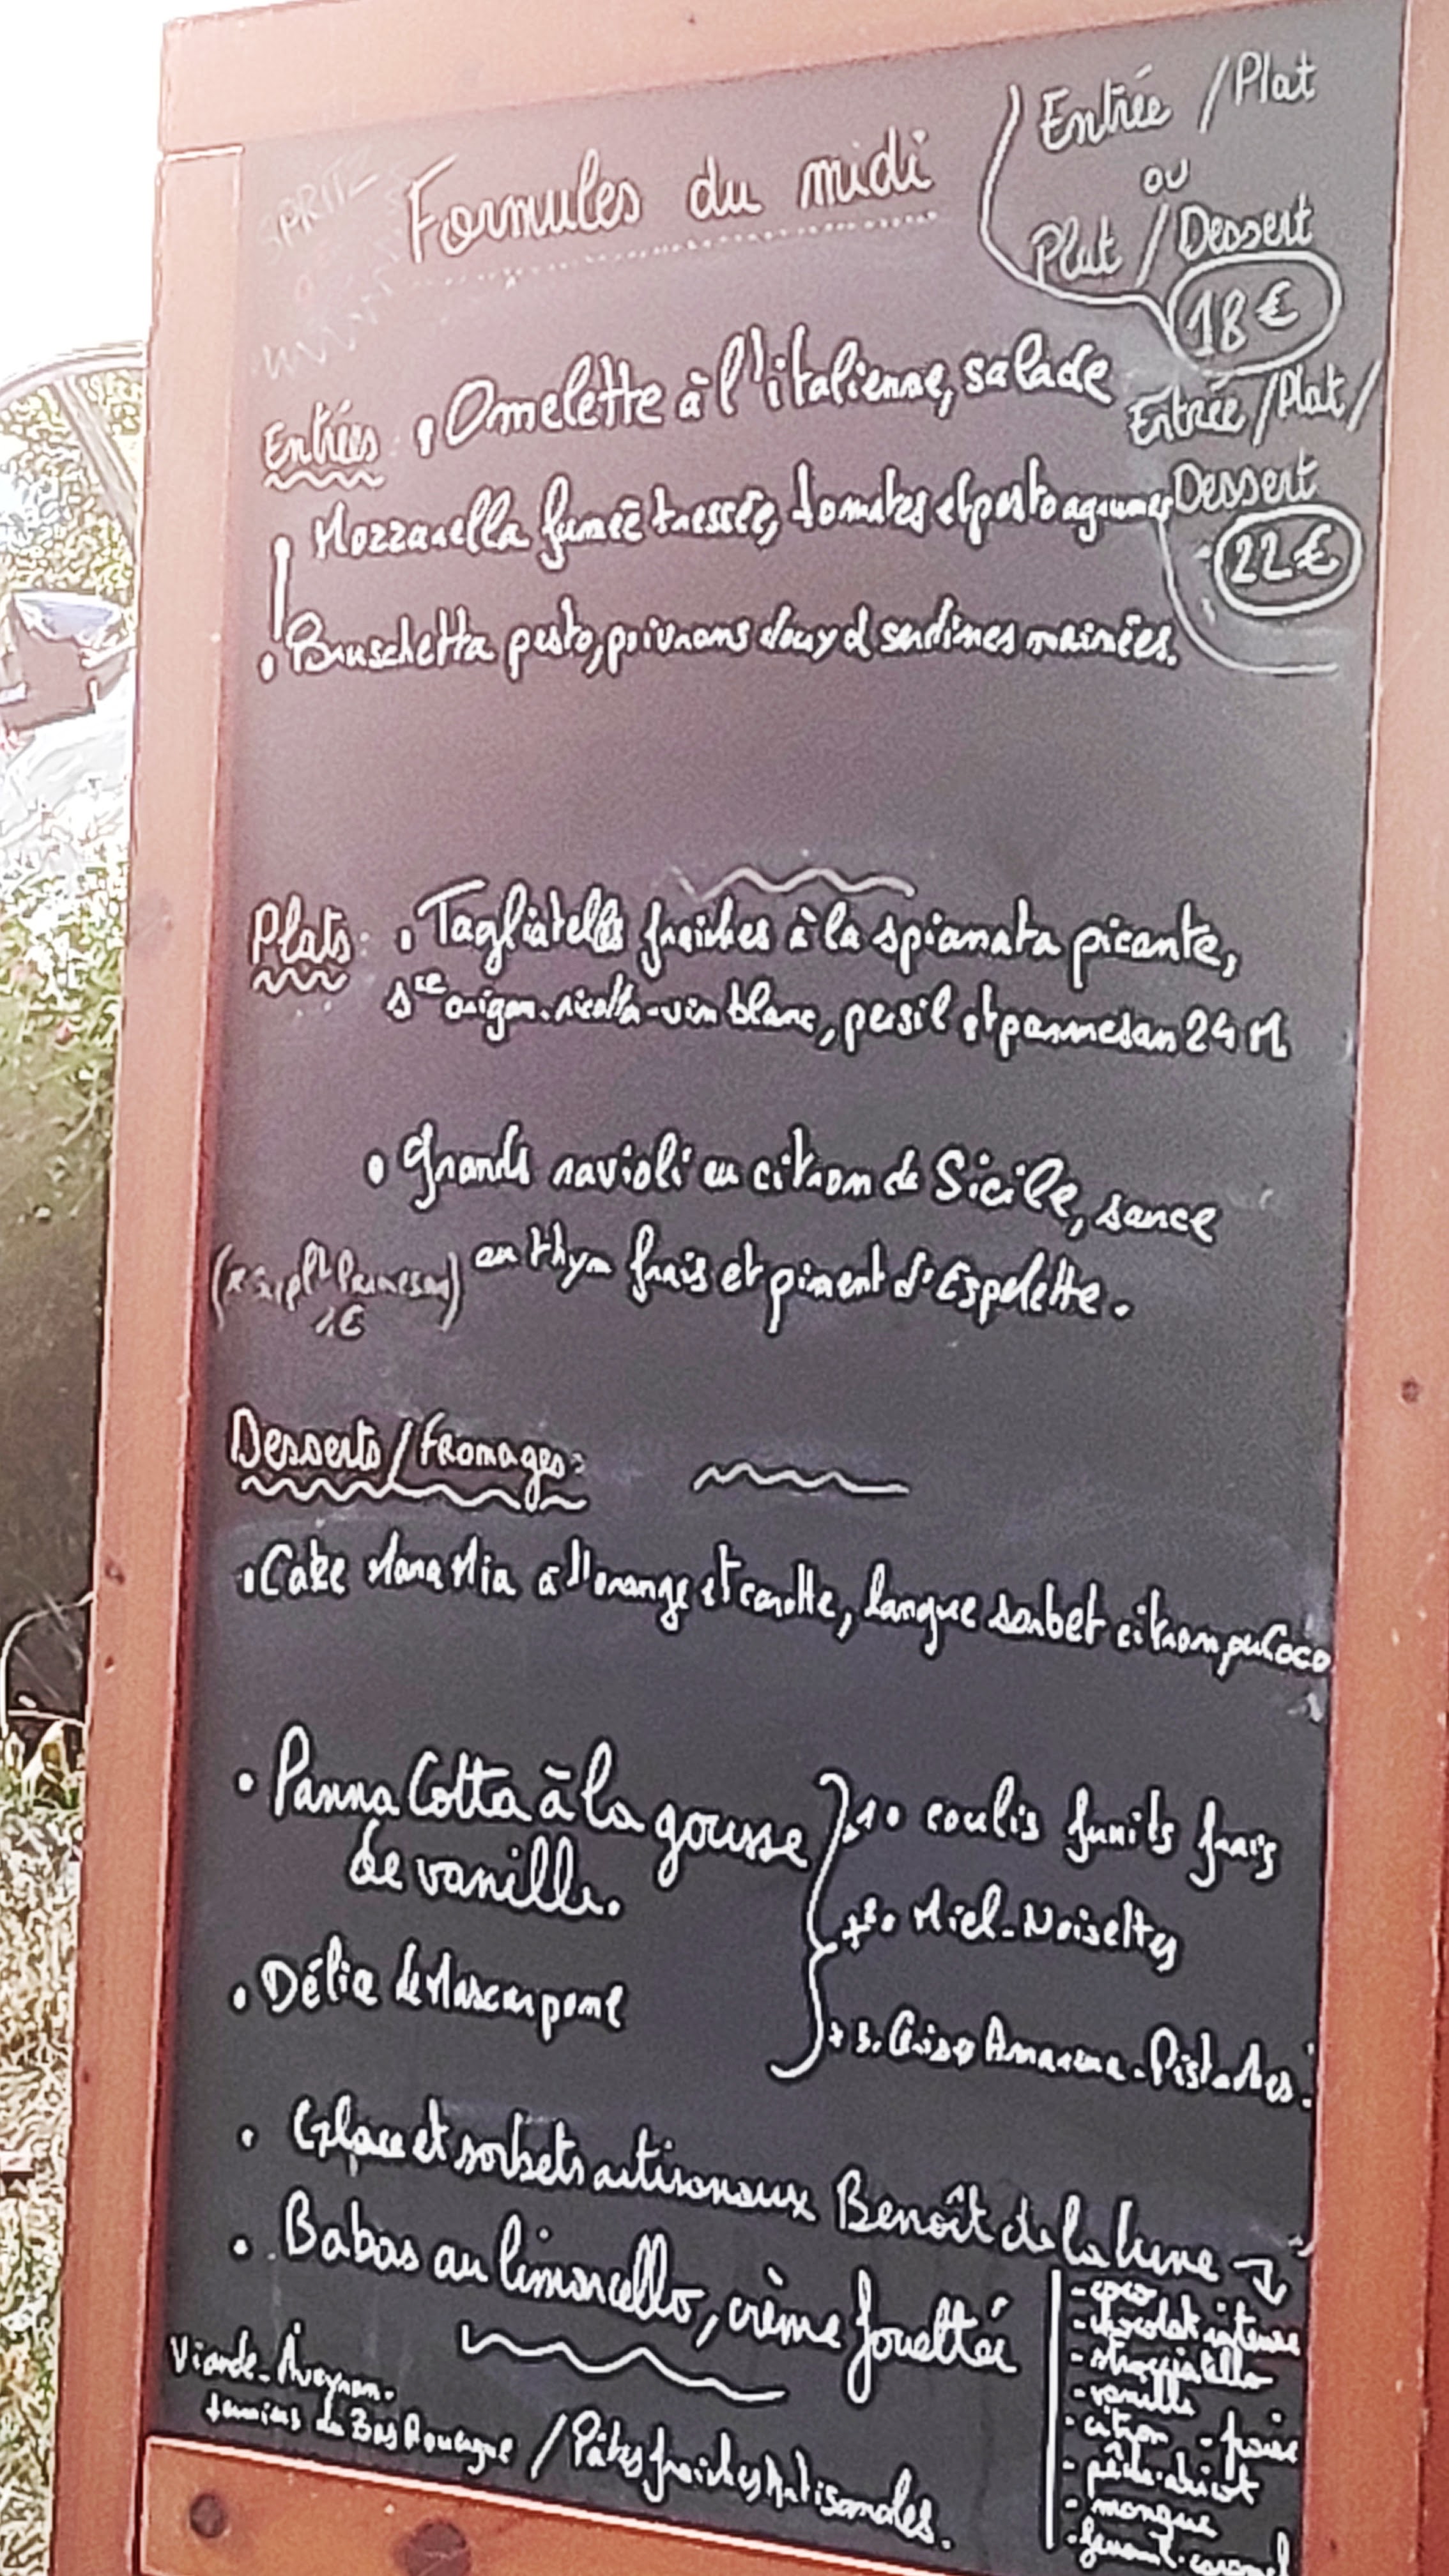 Formules du midi
Entrée / Plat
ou
Plat / Dessert
18€
Entrée / Plat /
Dessert
22€
Entrées : • Omelette à l'italienne, salade
• Mozzarella fumée tressée, tomates et pesto agrumes
• Bruschetta pesto, poivrons doux et sardines marinées.
Plats : • Tagliatelles fraîches à la spianata picante,
sce origan-ricotta-vin blanc, persil et parmesan 24 M
• Grands ravioli au citron de Sicile, sauce
au thym frais et piment d'Espelette.
(* Supplt Parmesan)
1€
Desserts / Fromages :
• Cake Mama Mia à l'orange et carotte, sorbet citron ou Coco
• Panna Cotta à la gousse
de vanille.
1. coulis fruits frais
+ 2. Miel-Noisettes
• Délice de Mascarpone
+ 3. Amarena-Pistaches.
• Glace et sorbets artisanaux Benoît de la lune
• Babas au limoncello, crème fouettée
- coco
- chocolat intense
- stracciatella
- vanille
- citron - fraise
- pêche-abricot
- mangue
- caramel
Viande-Aveyron.
du Bas Rouergue / Pâtes fraîches Artisanales.